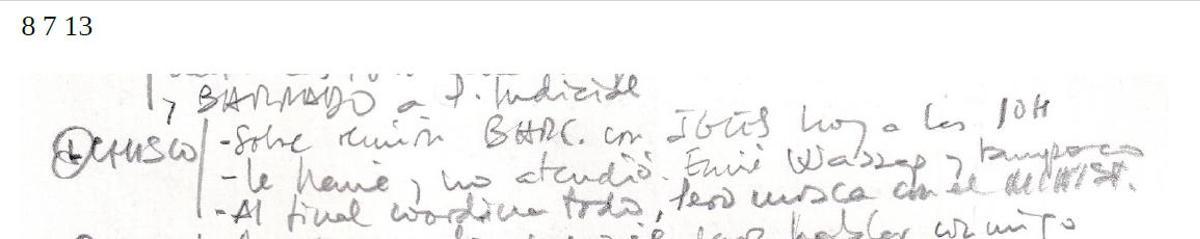 8 7 13
, BARRADO a P. Judicial
CHISCO - Sobre reunión BARC. con JGUES hoy a las 10H
- le llamé y no atendió. Envié Wassap y tampoco
- Al final coordina todo, pero mosca con el MINIST.
hablar conmigo